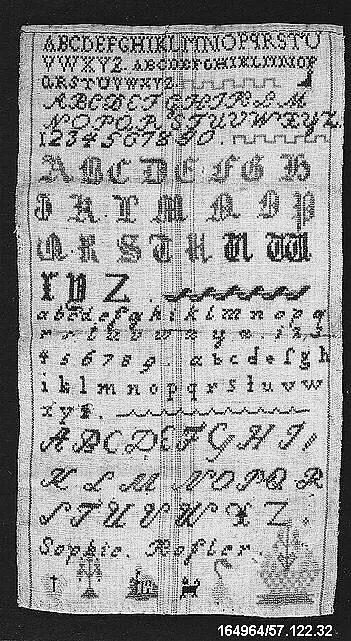 ABCDEFGHIKLMNOPQRSTU
VWXYZ. ABCDEFGHIKLMNOP
QRSTUVWXYZ
ABCDEFGHIKLM
NOPQRSTUVWXYZ
1234567890.
ABCDEFGH
IKLMNOP
QRSTUVW
XYZ.
abcdefghiklmnopq
rstuvwxyz. 123
456789. abcdefgh
iklmnopqrstuvw
xyz.
ABCDEFGHI
KLMNOPQR
STUVWXYZ.
Sophie. Rofler.
164964/57.122.32